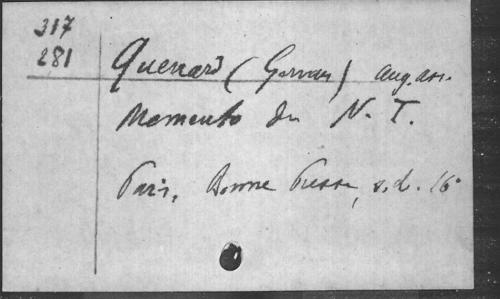 317
281
Quenard (Gervais) aug. ass.
Memento du N. T.
Paris, Bonne Presse, s.d. 16°